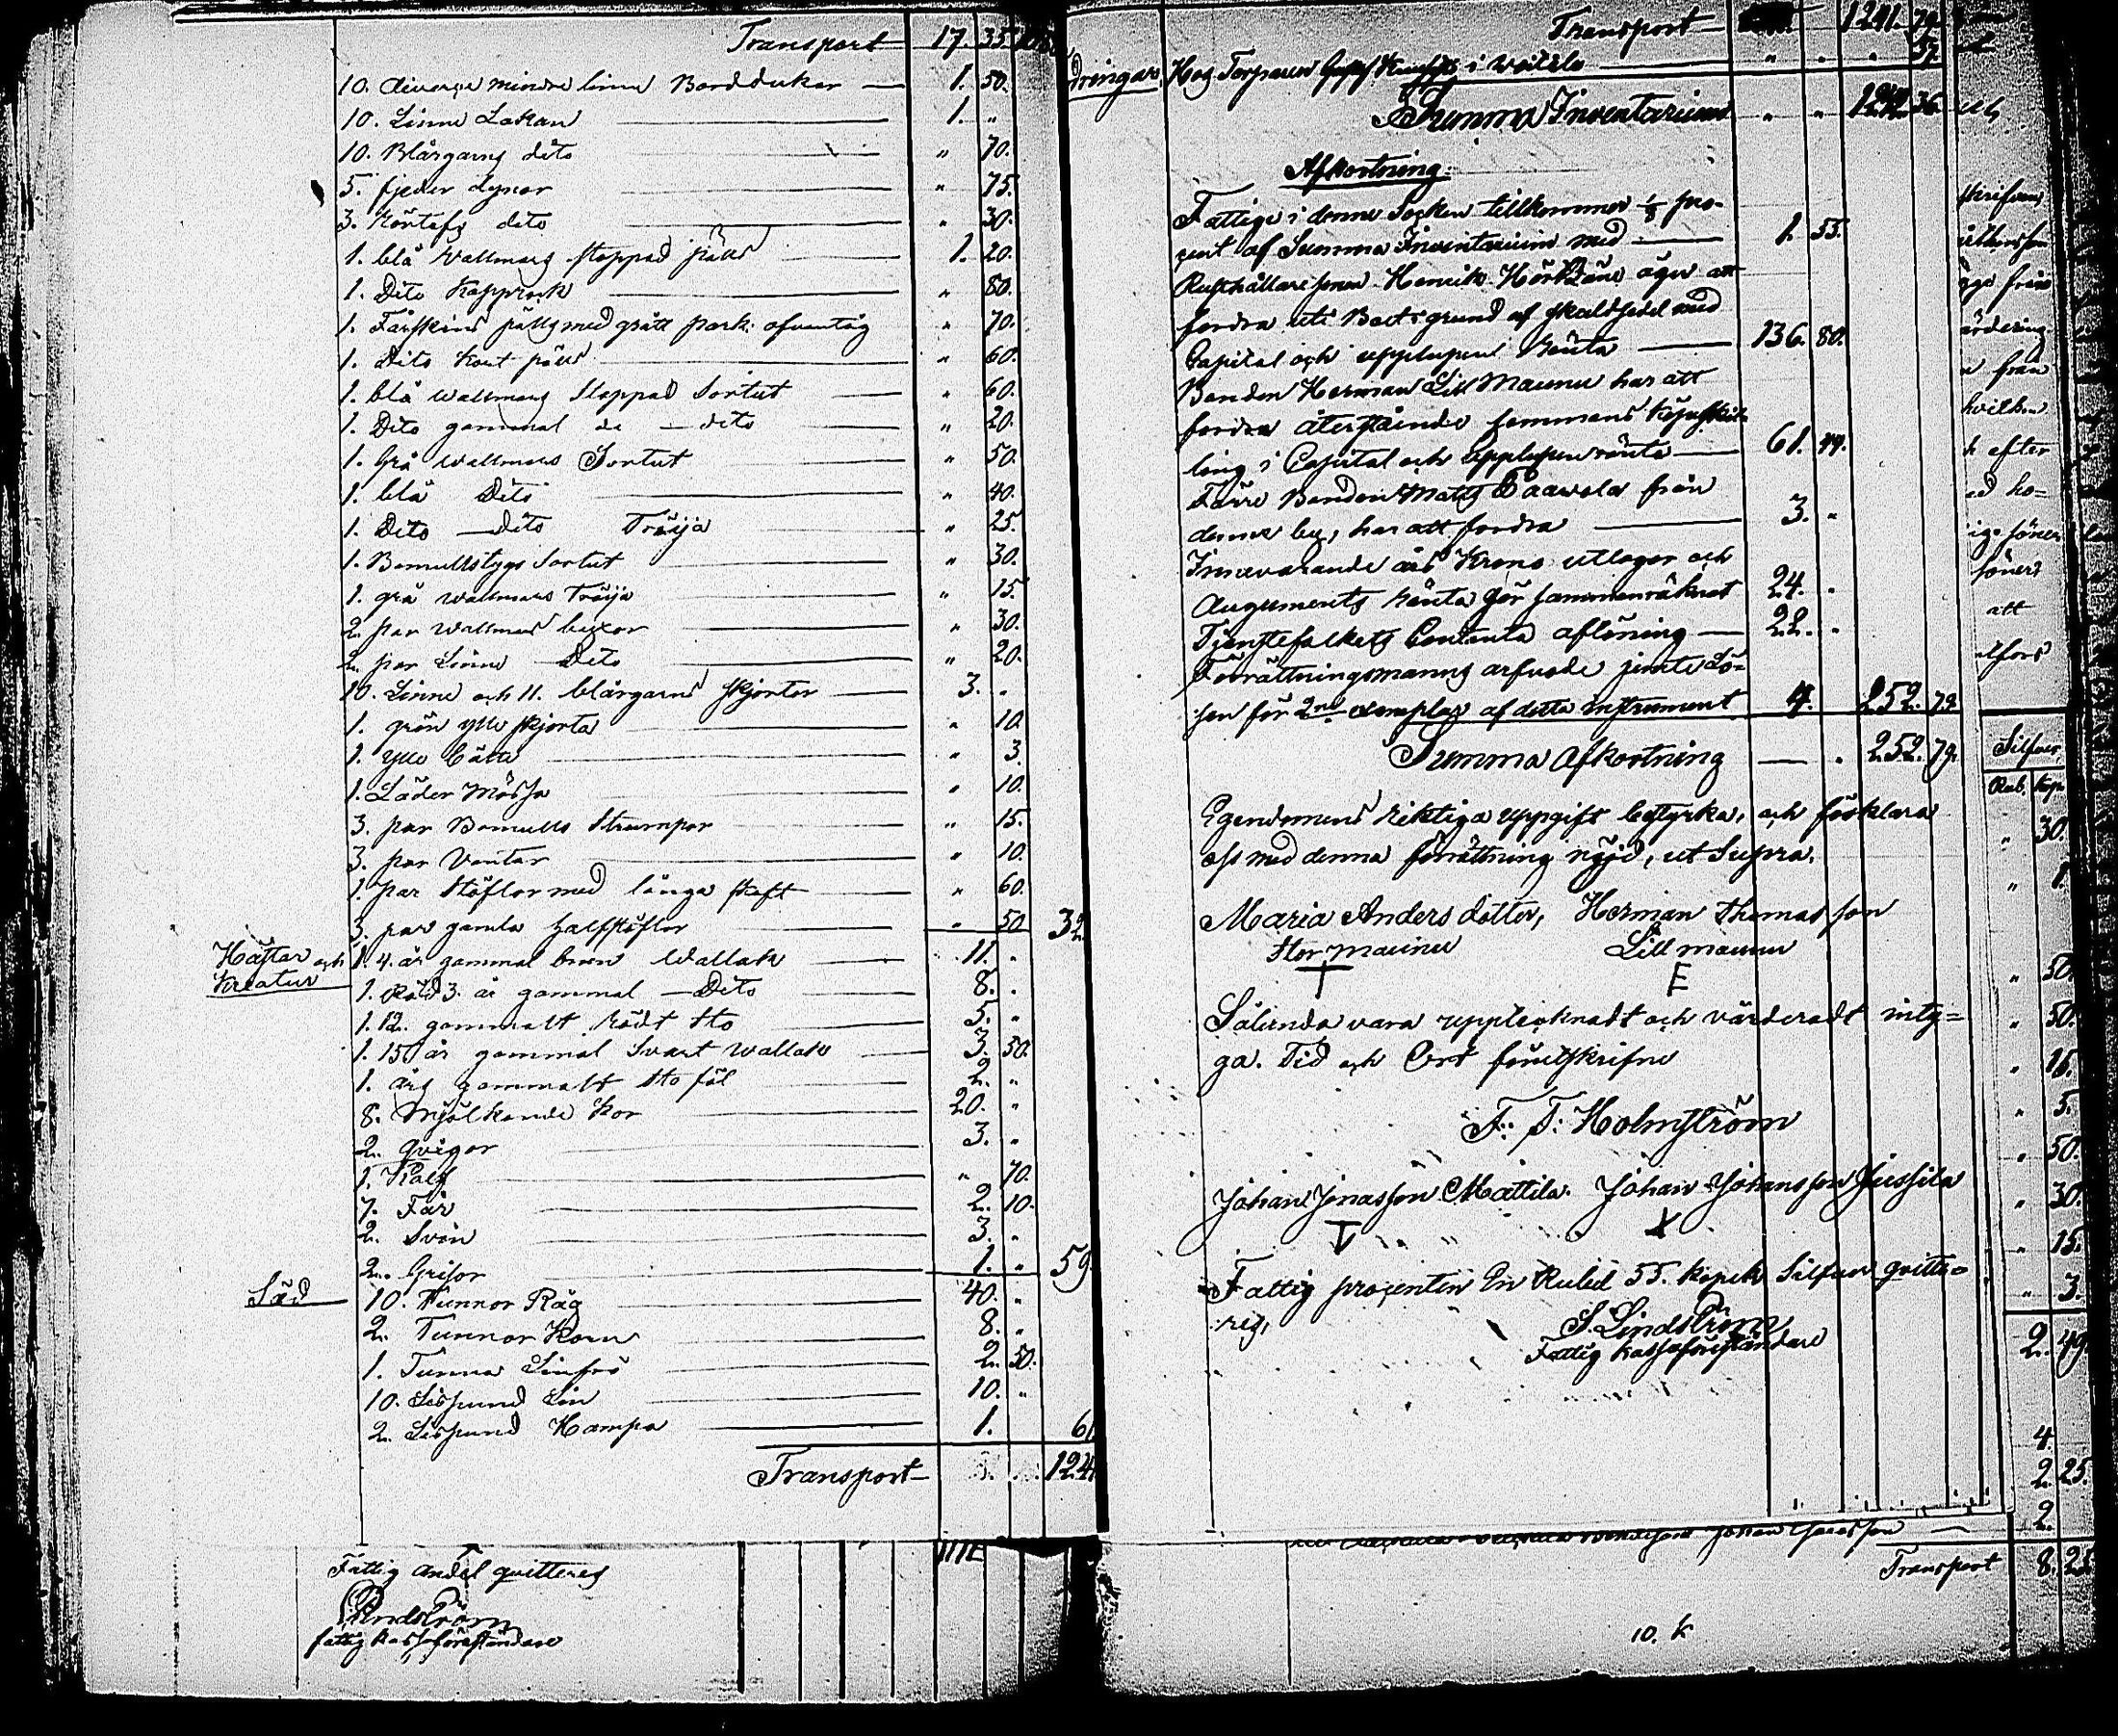 Transport 17. 35.
10. diverse mindre linne Bordduker 1. 50.
10. Linne Lakan 1. "
10. Blårgarns dito " 70.
5. fjeder dynor " 75.
3. dito " 30.
1. blå Wallmans stoppad päls 1. 20.
1. Dito Kapprock " 80.
1. Fårskins pälts med grått ofvantåg " 70.
1. Dito kort päls " 60.
1. blå Wallmans stoppad Sortut " 60.
1. Dito gammal do dito " 20.
1. Grå Wallmans Sortut " 50.
1. blå Dito " 40.
1. Dito dito Tröija " 25.
1. Bomullstygs Sortut " 30.
1. grå Wallmans Tröija " 15.
2. par Wallmans buxor " 30.
2. par Linne Dito " 20.
10. Linne och 11. blårgarns skjortor 3. "
1. grön ylle skjorta " 10.
1. ylle " 3.
1. Läder Mössa " 10.
3. par Bomulls Strumpor " 15.
3. par Vantar " 10.
1. par Stöflor med långa skaft " 60.
3. par gamla halfstöflor " 50 32.
Hästar och
Kreatur
1. 4. år gammal brun Wallak 11. "
1. 3. år gammal Dito 8. "
1. 12. gammalt Rödt Sto 5. "
1. 15. år gammal Svart Wallak 3. 50.
1. års gammalt sto föl 2. "
8. Mjölkande Kor 20. "
2. Qvigor 3. "
1. Kalf " 70.
7. Får 2. 10.
2. Svin 3. "
2. Grisar 1. " 59.
Säd
10. Tunnor Råg 40. "
2. Tunnor Korn 8. "
1. Tunna Linfrö 2. 50.
10. Lispund Lin 10. "
2. Lispund Hampa 1. 61
Transport 124
Fattig andel quitteras
Lindström
fattig kassaföreståndare
Transport 1241. 79.
dringar Hos Torparen Gustaf i 57.
Summa Inventarium " " 1242. 36.
Afkortning:
Fattige i denne Socken tillkommer 1/8 pro-
cent af Summa Inventarium med 1. 55.
Rusthållaresonen Henrik äger att
fordra uti grund af skuldsedel med
Capital och upplupen Ränta 136. 80.
Bonden Herman Lill Maunu har att
fordra återstående sommans köpeskil-
ling i Capital och upplupen ränta 61. 44.
Förre Bonden Matts Paavola från
denne by, har att fordra 3. "
Innevarande års Krono utlagor och
Auguments Ränta gör sammanräknat 24. "
Tjenstefolkets Contanta aflöning 22. "
Förrättningsmanns arfvode jemte Lö-
sen för 2ne exemplar af detta instrument 4. 252. 79.
Summa Afkortning " 252. 79.
Egendomens riktiga uppgift bestyrka, och förklara
oss med denna förrättning nöjd, ut Supra.
Maria Anders dotter, Herman Thomas son
Stor maunu Lill maunu
Sålunda vara upplecknadt och värderadt intyg-
ga. Tid och Ort förutskrifne
F. F. Holmström
Johan Jonasson Mattila. Johan Johansson Jussila
Fattig procenten En Rubel 55. kopek Silfver qvitte-
ras,
S. Lindström
Fattig kassaföreståndare
ärdering
från
efter
söner
att
Silfver
Rub. Kop.
" 30.
" 1.
" 50
" 50.
" 15.
" 5.
" 50.
" 30.
" 15.
" 3.
2. 49.
4.
2. 25.
2.
Transport 8. 25
10. k